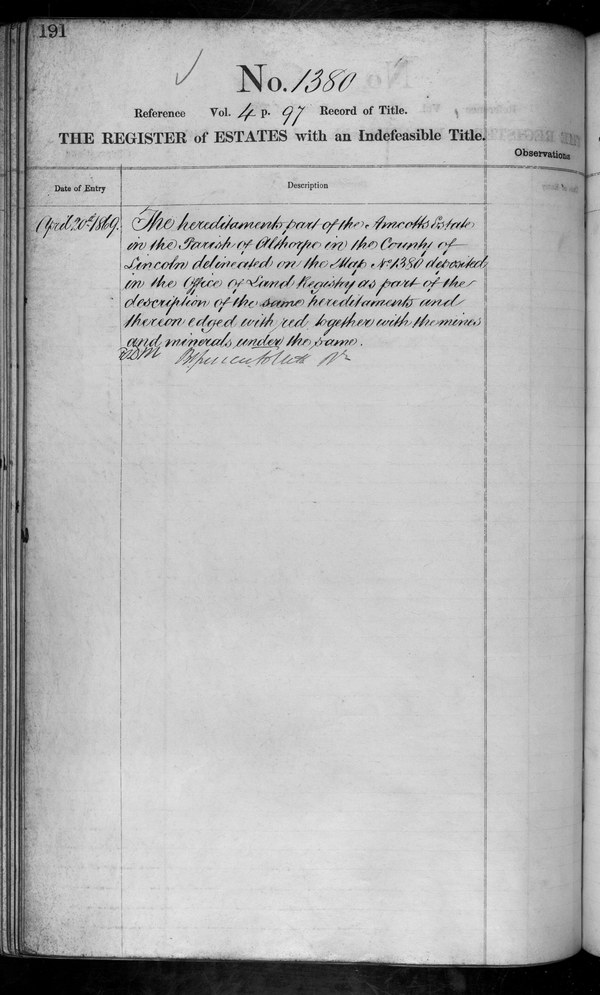 191
No. 1380
Reference Vol. 4 p. 97 Record of Title.
THE REGISTER of ESTATES with an Indefeasible Title.
Observations
Date of Entry
Description
April 20th 1869.
The hereditaments part of the Amcotts Estate
in the Parish of Althorpe in the County of
Lincoln delineated on the Map No 1380 deposited
in the Office of Land Registry as part of the
description of the same hereditaments and
thereon edged with red together with the mines
and minerals under the same.